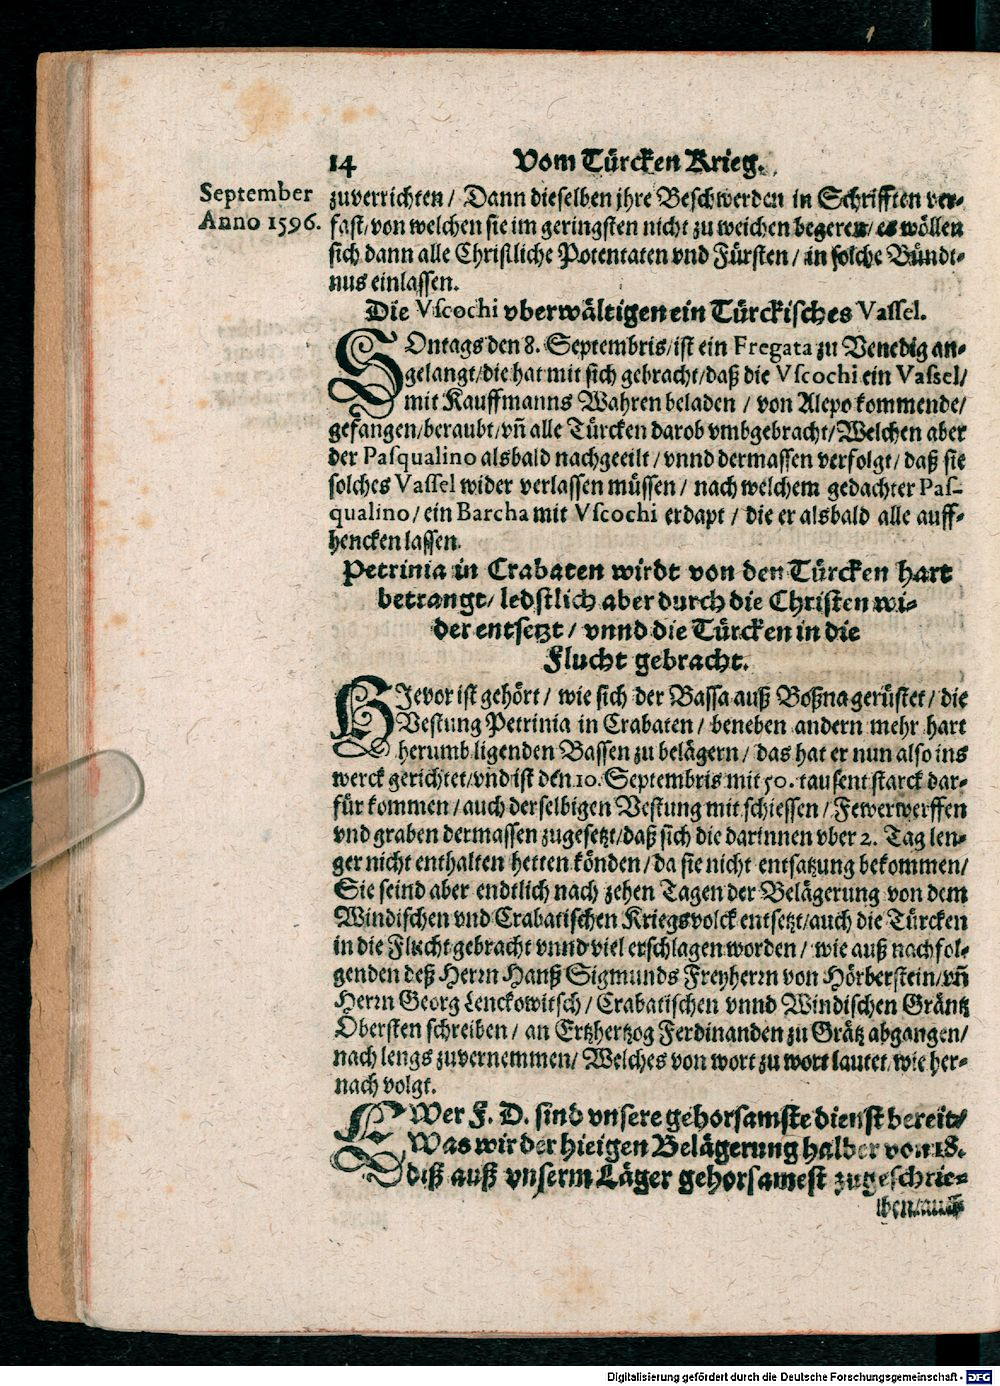 14 Vom Türcken Krieg.
September
Anno 1596.
zuverrichten / Dann dieselben ihre Beschwerden in Schrifften ver-
fast/von welchen sie im geringsten nicht zu weichen begeren/ es wöllen
sich dann alle Christliche Potentaten vnd Fürsten / in solche Bündt-
nus einlassen.
Die Vscochi vberwältigen ein Türckisches Vassel.
SOntags den 8. Septembris/ist ein Fregata zu Venedig an-
gelangt/die hat mit sich gebracht/daß die Vscochi ein Vassel/
mit Kauffmanns Wahren beladen / von Alepo kommende/
gefangen/beraubt/vñ alle Türcken darob vmbgebracht/Welchen aber
der Pasqualino alsbald nachgeeilt / vnnd dermassen verfolgt / daß sie
solches Vassel wider verlassen müssen / nach welchem gedachter Pas-
qualino / ein Barcha mit Vscochi erdapt / die er alsbald alle auff-
hencken lassen.
Petrinia in Crabaten wirdt von den Türcken hart
betrangt/ ledstlich aber durch die Christen wi-
der entsetzt / vnnd die Türcken in die
Flucht gebracht.
HIevor ist gehört / wie sich der Bassa auß Boßna gerüstet / die
Vestung Petrinia in Crabaten / beneben andern mehr hart
herumb ligenden Bassen zu belägern / das hat er nun also ins
werck gerichtet/vnd ist den 10. Septembris mit 50. tausent starck dar-
für kommen / auch derselbigen Vestung mit schiessen / Fewerwerffen
vnd graben dermassen zugesetzt/daß sich die darinnen vber 2. Tag len-
ger nicht enthalten hetten könden / da sie nicht entsatzung bekommen/
Sie seind aber endtlich nach zehen Tagen der Belägerung von dem
Windischen vnd Crabatischen Kriegsvolck entsetzt/auch die Türcken
in die Flucht gebracht vnnd viel erschlagen worden / wie auß nachfol-
genden deß Herrn Hanß Sigmunds Freyherrn von Hörberstein/vñ
Herrn Georg Lenckowitsch / Crabatischen vnnd Windischen Gräntz
Obersten schreiben / an Ertzhertzog Ferdinanden zu Grätz abgangen/
nach lengs zuvernemmen/ Welches von wort zu wort lautet/wie her-
nach volgt.
EWer F. D. sind vnsere gehorsamste dienst bereit/
Was wir der hieigen Belägerung halber von 18.
diß auß vnserm Läger gehorsamest zugeschrie-
ben/auch
Digitalisierung gefördert durch die Deutsche Forschungsgemeinschaft - DFG